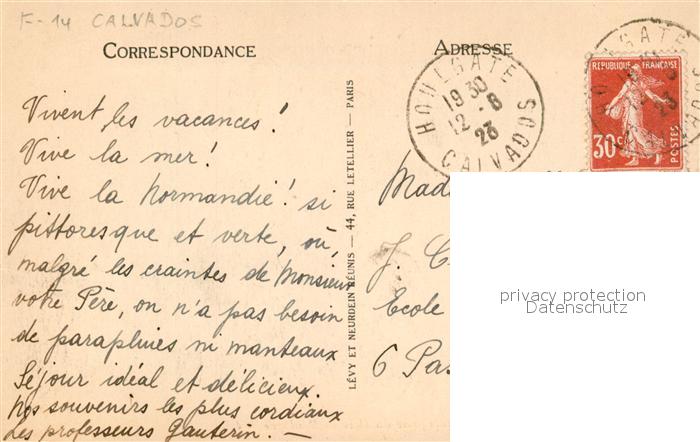 F-14 CALVADOS
CORRESPONDANCE
Vivent les vacances!
Vive la mer!
Vive la Normandie! si
pittoresque et verte, où
malgré les craintes de Monsieur
votre Père, on n'a pas besoin
de parapluies ni manteaux
Séjour idéal et délicieux.
Nos souvenirs les plus cordiaux
Les professeurs Gauterin. —
LÉVY ET NEURDEIN RÉUNIS — 44, RUE LETELLIER — PARIS
ADRESSE
HOULGATE
19 30
12 - 8
23
CALVADOS
RÉPUBLIQUE FRANÇAISE
30c
POSTES
GATE
23
VADOS
Mad
J. C
Ecole
6 Pas
privacy protection
Datenschutz